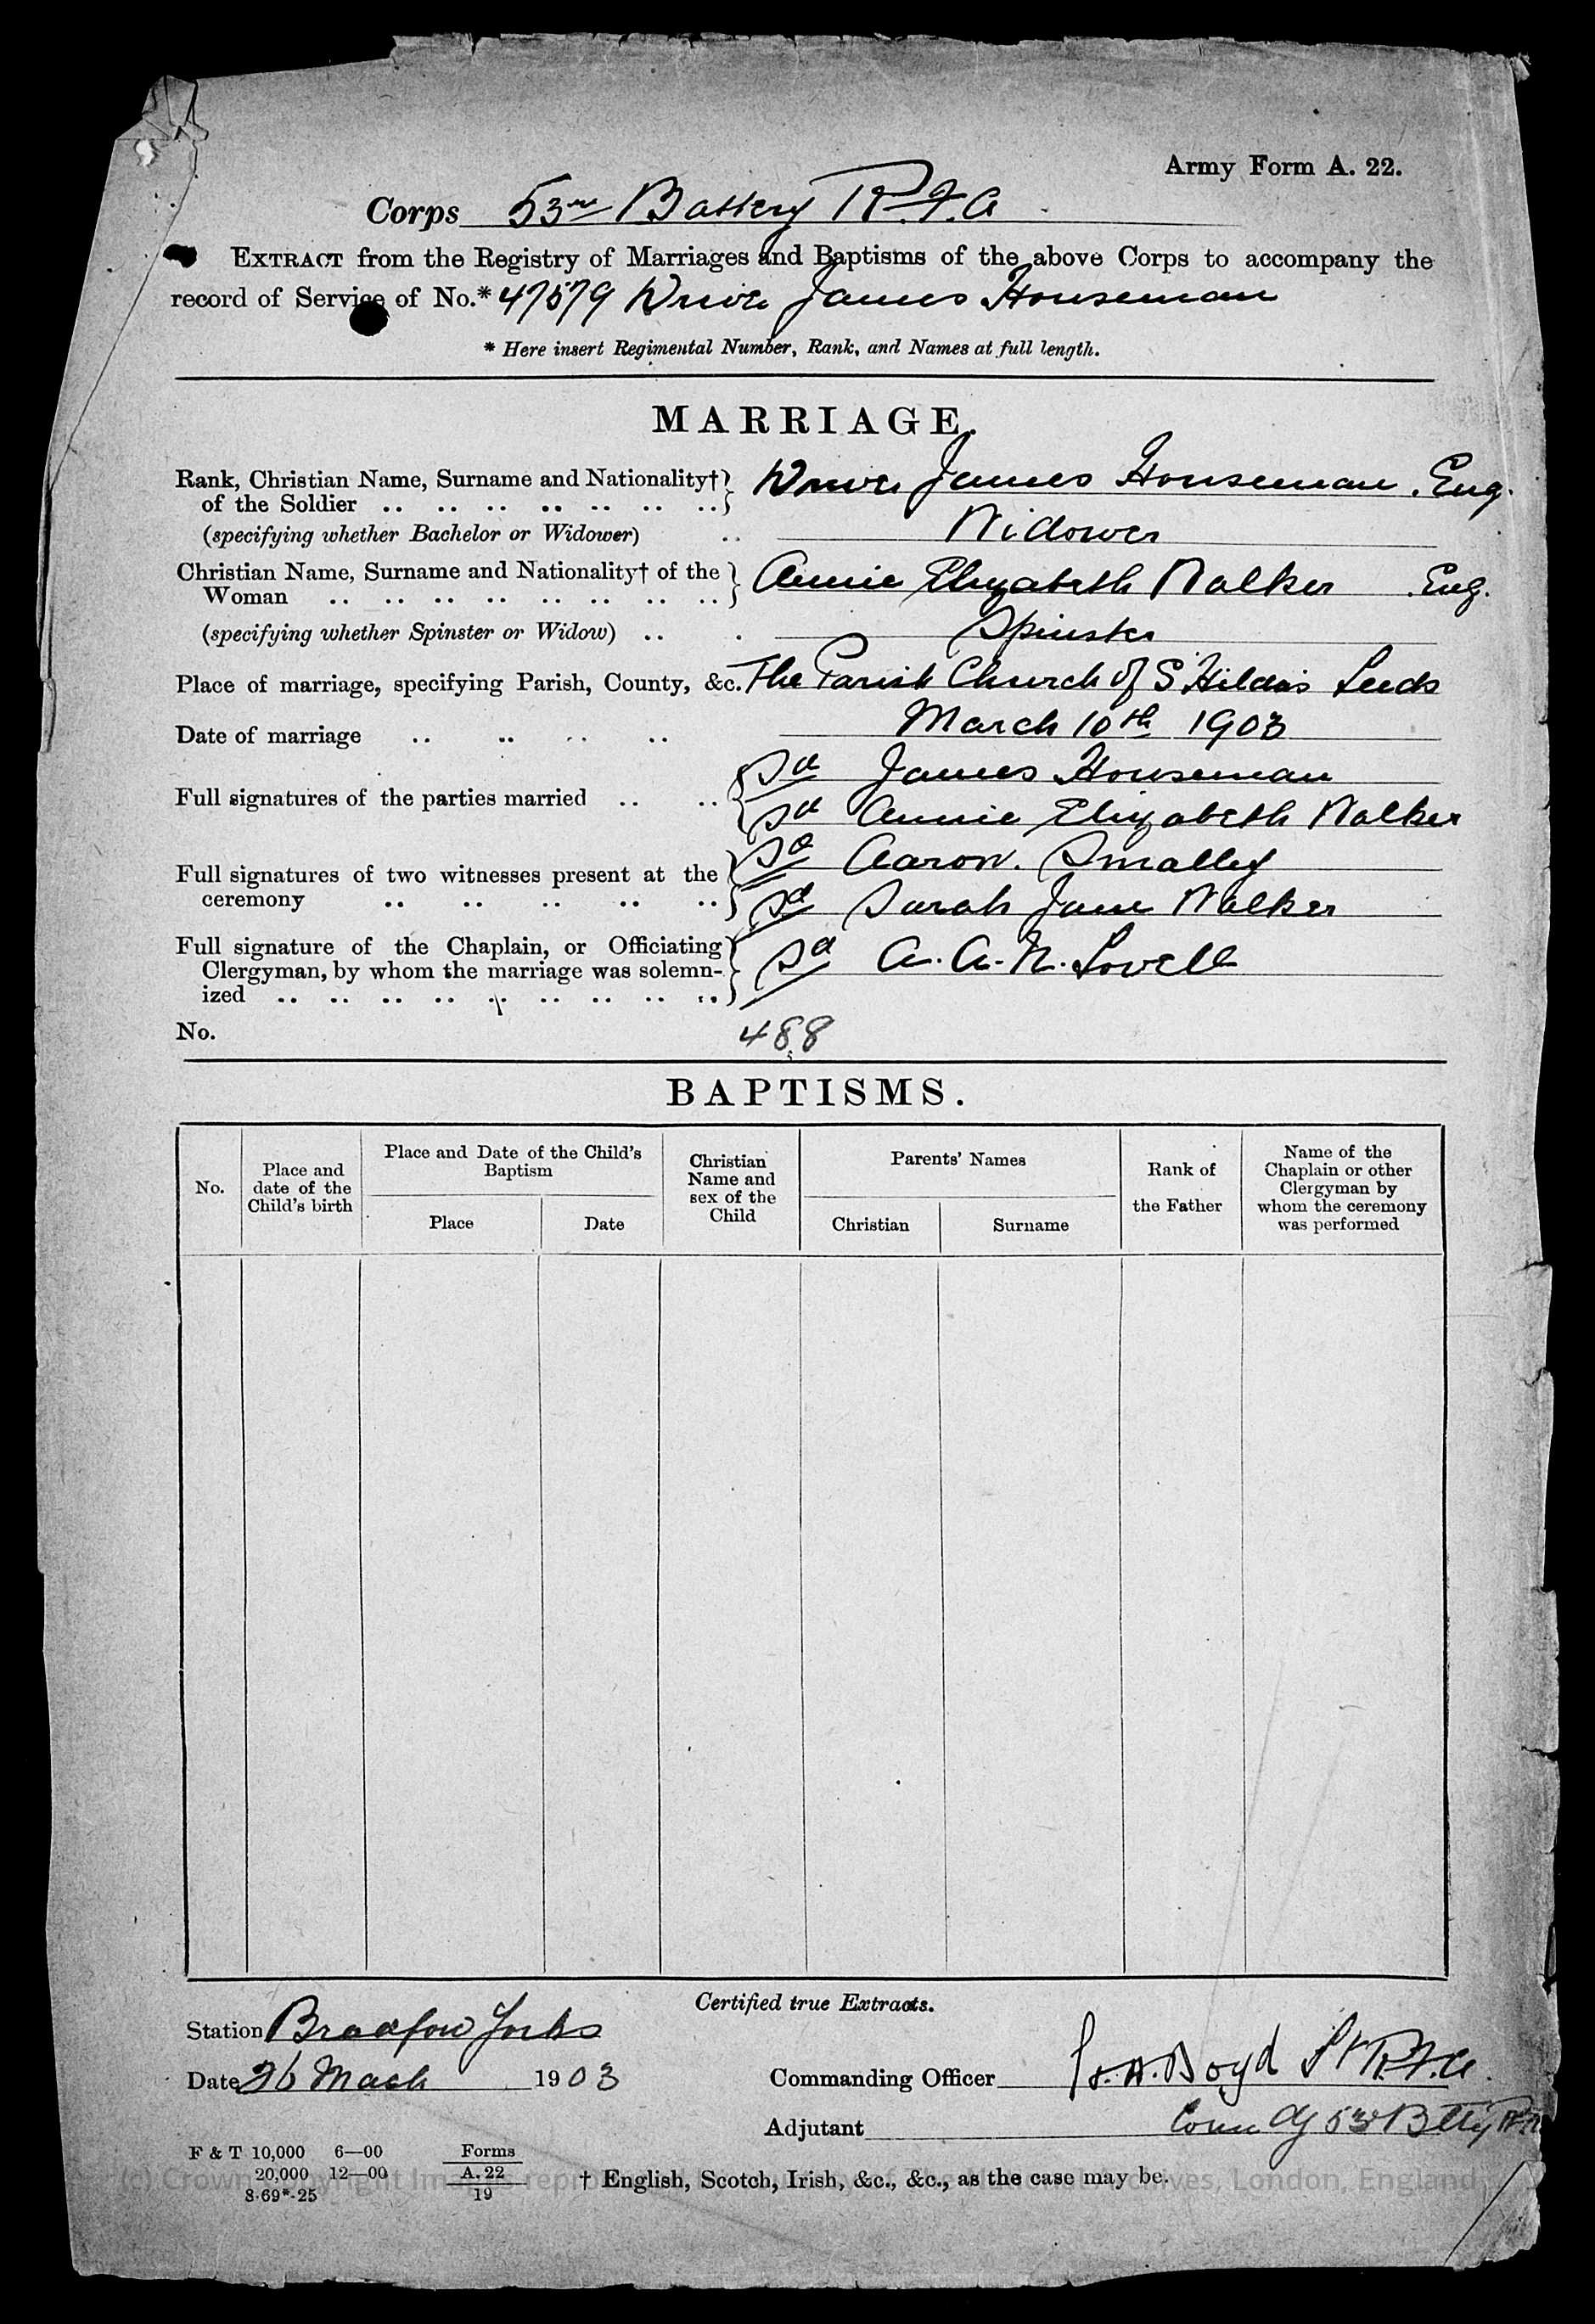 Army Form A. 22.
Corps 53rd Battery R.F.A
EXTRACT from the Registry of Marriages and Baptisms of the above Corps to accompany the
record of Service of No.* 47579 Driver James Houseman
* Here insert Regimental Number, Rank, and Names at full length.
MARRIAGE.
Rank, Christian Name, Surname and Nationality† of the Soldier .. Driver James Houseman. Eng.
(specifying whether Bachelor or Widower) .. Widower
Christian Name, Surname and Nationality† of the Woman .. Annie Elizabeth Walker Eng.
(specifying whether Spinster or Widow) .. Spinster
Place of marriage, specifying Parish, County, &c. The Parish Church of St Hilda's Leeds
Date of marriage .. March 10th 1903
Full signatures of the parties married .. Sd James Houseman
Sd Annie Elizabeth Walker
Full signatures of two witnesses present at the ceremony .. Sd Aaron. Smalley
Sd Sarah Jane Walker
Full signature of the Chaplain, or Officiating Clergyman, by whom the marriage was solemnized .. Sd A. A. N. Lovell
No. 488
BAPTISMS.
No.
Place and date of the Child's birth
Place and Date of the Child's Baptism
Place
Date
Christian Name and sex of the Child
Parents' Names
Christian
Surname
Rank of the Father
Name of the Chaplain or other Clergyman by whom the ceremony was performed
Certified true Extracts.
Station Bradford Yorks
Date 26 March 1903
Commanding Officer Boyd Lt R.F.A.
Adjutant Comm dg 53rd Btty
F & T 10,000 6—00
20,000 12—00
8·69*-25
Forms
A. 22
19
† English, Scotch, Irish, &c., &c., as the case may be.
(c) Crown Copyright Images reproduced by courtesy of The National Archives, London, England